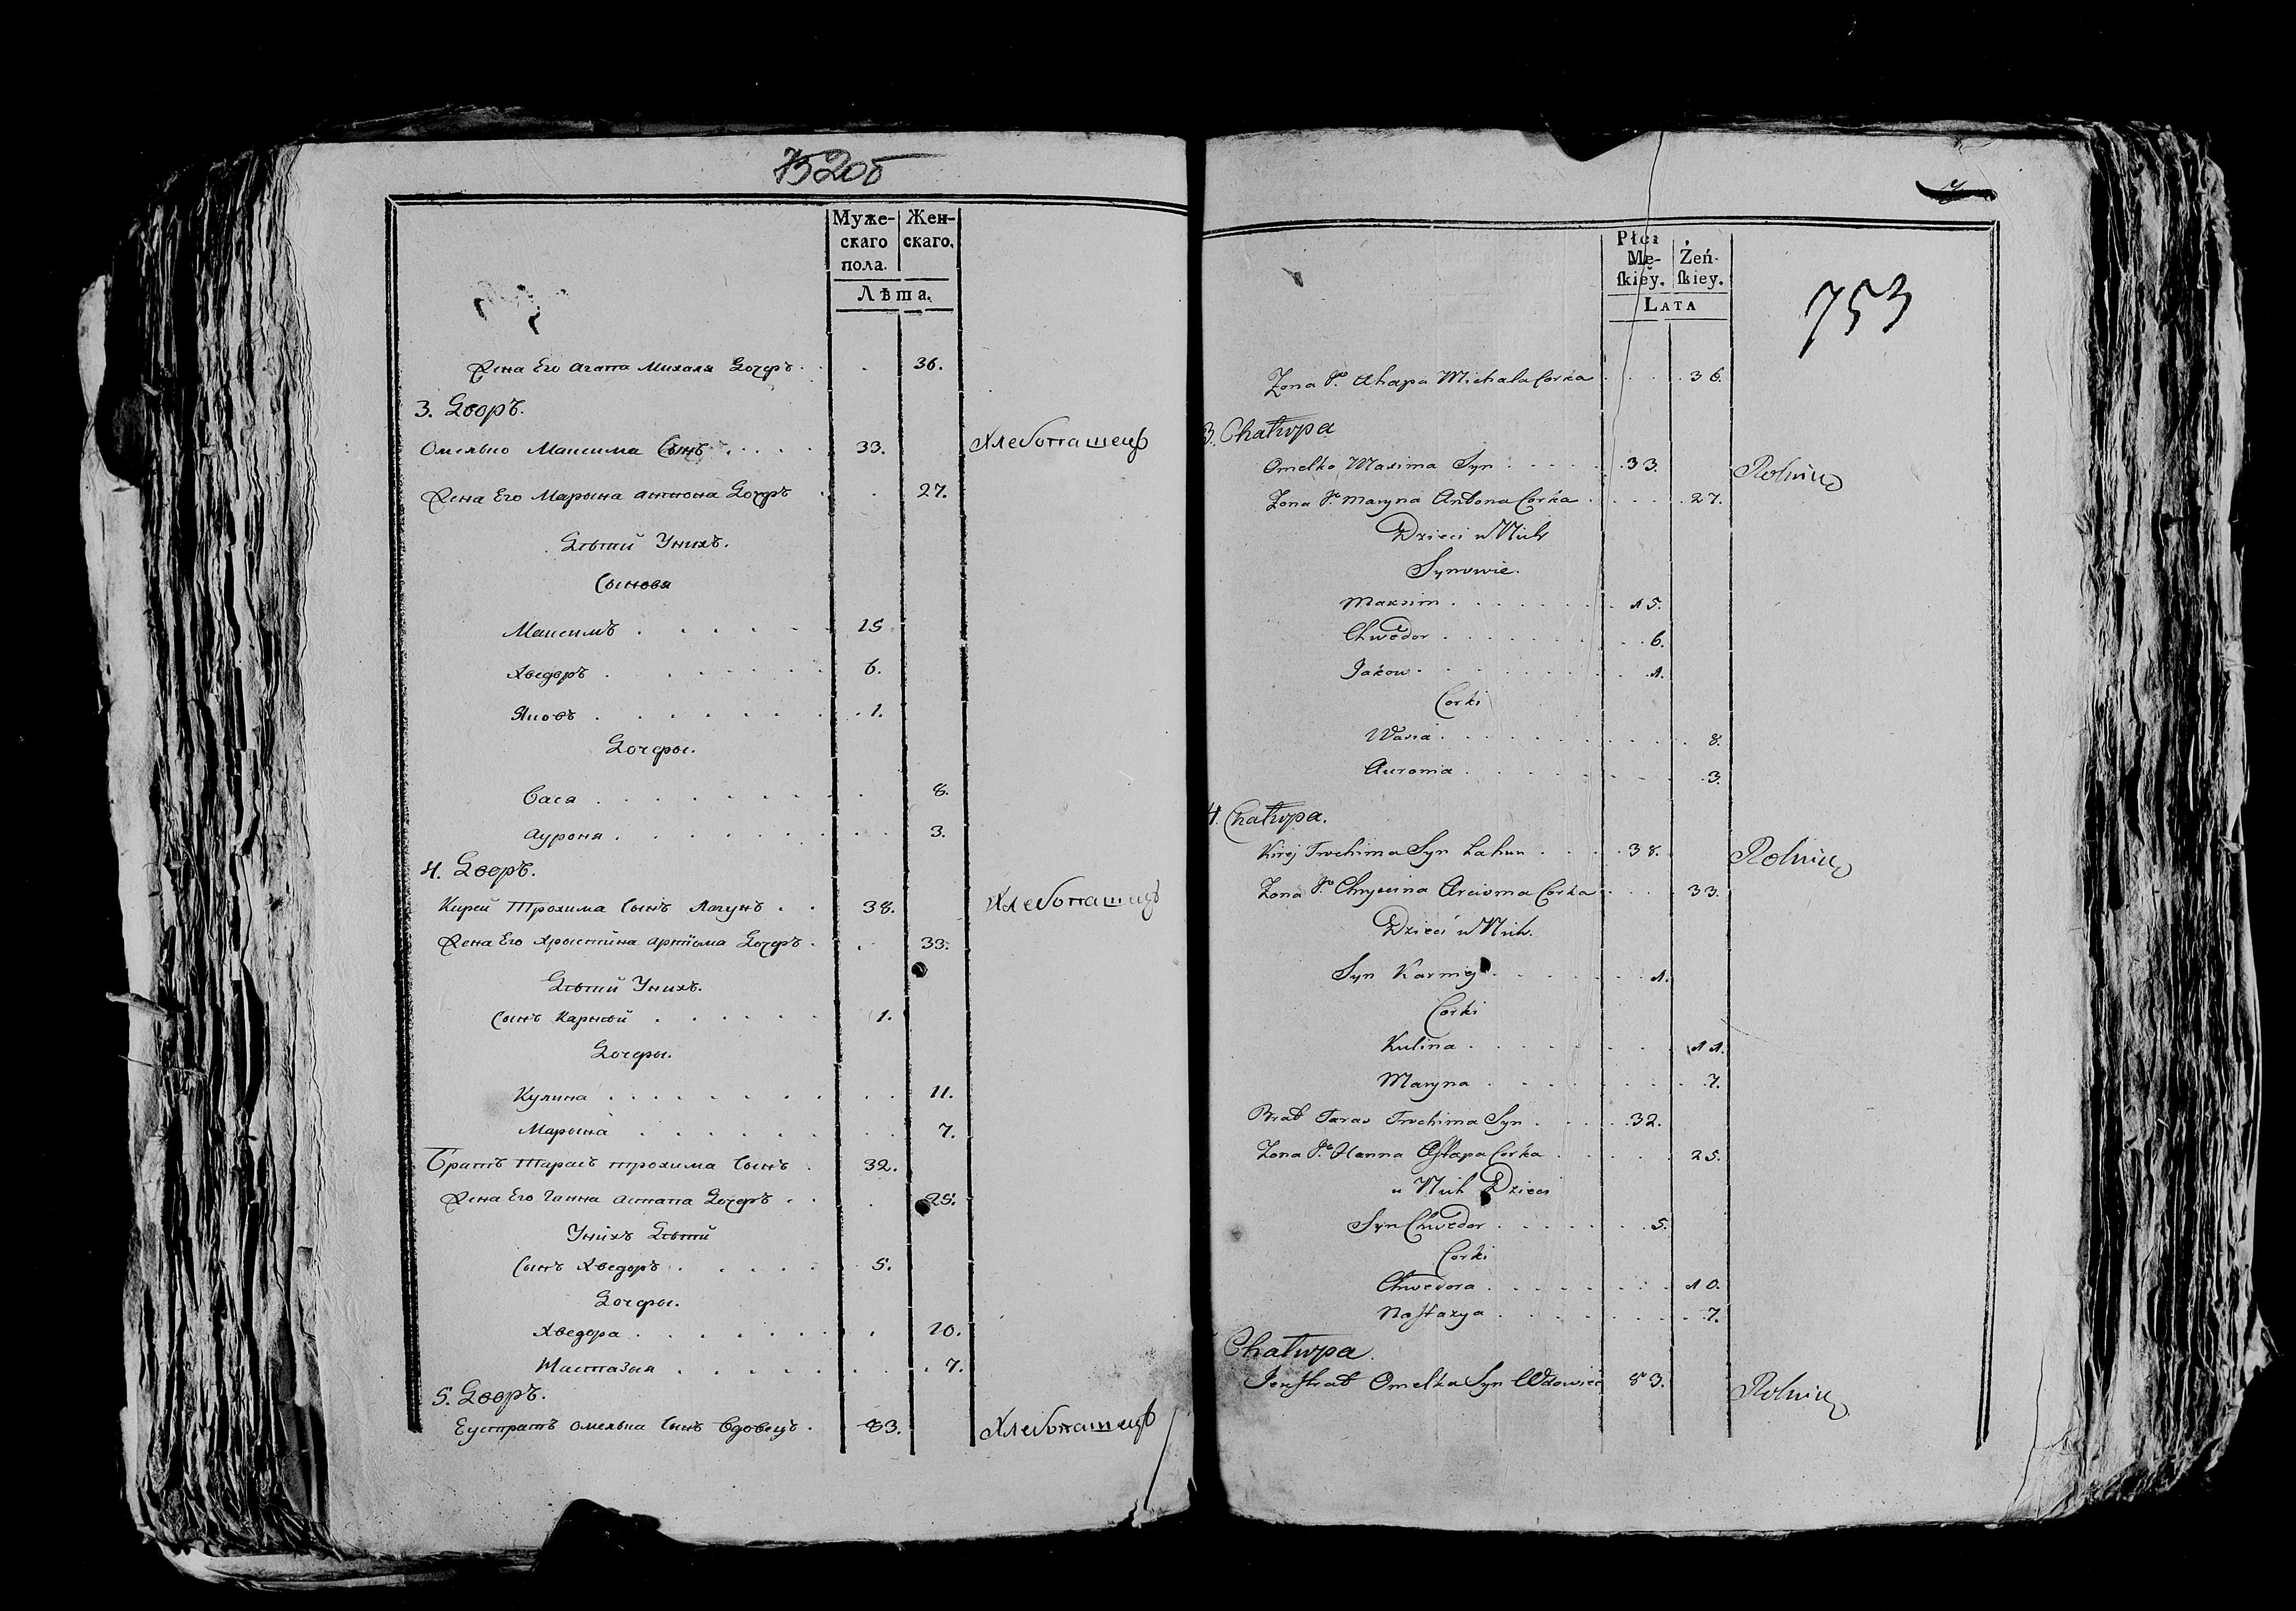 752об
Муже- Жен-
скаго скаго.
пола.
Лѣта.
Жена Его Агапа Михала Дочерь . . . 36.
3. Дворъ.
Омелько Максима Сынъ . . . . . 33. Хлебопашецъ
Жена Его Марына Антона Дочерь . . 27.
Дѣтй Унихъ.
Сыновя
Максимъ . . . . . 15
Хведоръ . . . . . . 6.
Яковъ . . . . . . . 1.
Дочеры.
Васа . . . . . . . . 8.
Ауроня . . . . . . . . 3.
4. Дворъ.
Кирей Трохима Сынъ Лагунъ . . 38. Хлебопашецъ
Жена Его Хрыстйна Артйома Дочерь . . 33.
Дѣтй Унихъ.
Сынъ Карнѣй . . . . . . 1.
Дочеры.
Кулина . . . . . . . . . 11.
Марына . . . . . . . . 7.
Братъ Тарасъ Трохима Сынъ . 32.
Жена Его Ганна Астапа Дочерь . . . 25.
Унйхъ Дѣтй
Сынъ Хведоръ . . . . . 5.
Дочеры.
Хведора . . . . . . . . 10.
Настазыя . . . . . . . . 7.
5. Дворъ.
Еустратъ Омелька Сынъ Вдовецъ . 83. Хлебопашецъ
Płci
Mę- Żeń-
ſkiey. ſkiey.
LATA
753
Żona Jo Ahapa Michala Corka . . . . 36.
3. Chałupa
Omelko Maxima Syn . . . . . 33. Rolnik
Żona Jo Maryna Antona Corka . . . . 27.
Dzieci u Nich
Synowie.
Maxim . . . . . . . . 15.
Chwedor . . . . . . . . . 6.
Jakow . . . . . . . . . 1.
Corki
Wasia . . . . . . . . . . . 8.
Auronia . . . . . . . . . . 3.
4. Chałupa.
Kirej Trochima Syn Lahun . . . . 38. Rolnik
Żona Jo Chryscina Arcioma Corka . . . 33.
Dzieci u Nich.
Syn Karniej . . . . . . . 1.
Corki
Kulina . . . . . . . 11.
Maryna . . . . . . . . 7.
Brat Taras Trochima Syn . . . . . 32.
Żona Jo Hanna Aſtapa Corka . . . . . 25.
u Nich Dzieci
Syn Chwedor . . . . . . . 5.
Corki
Chwedora . . . . . . . . 10.
Naſtazya . . . . . . . . . 7.
Chałupa.
Jeuſtrat Omelka Syn Wdowiec 83. Rolnik